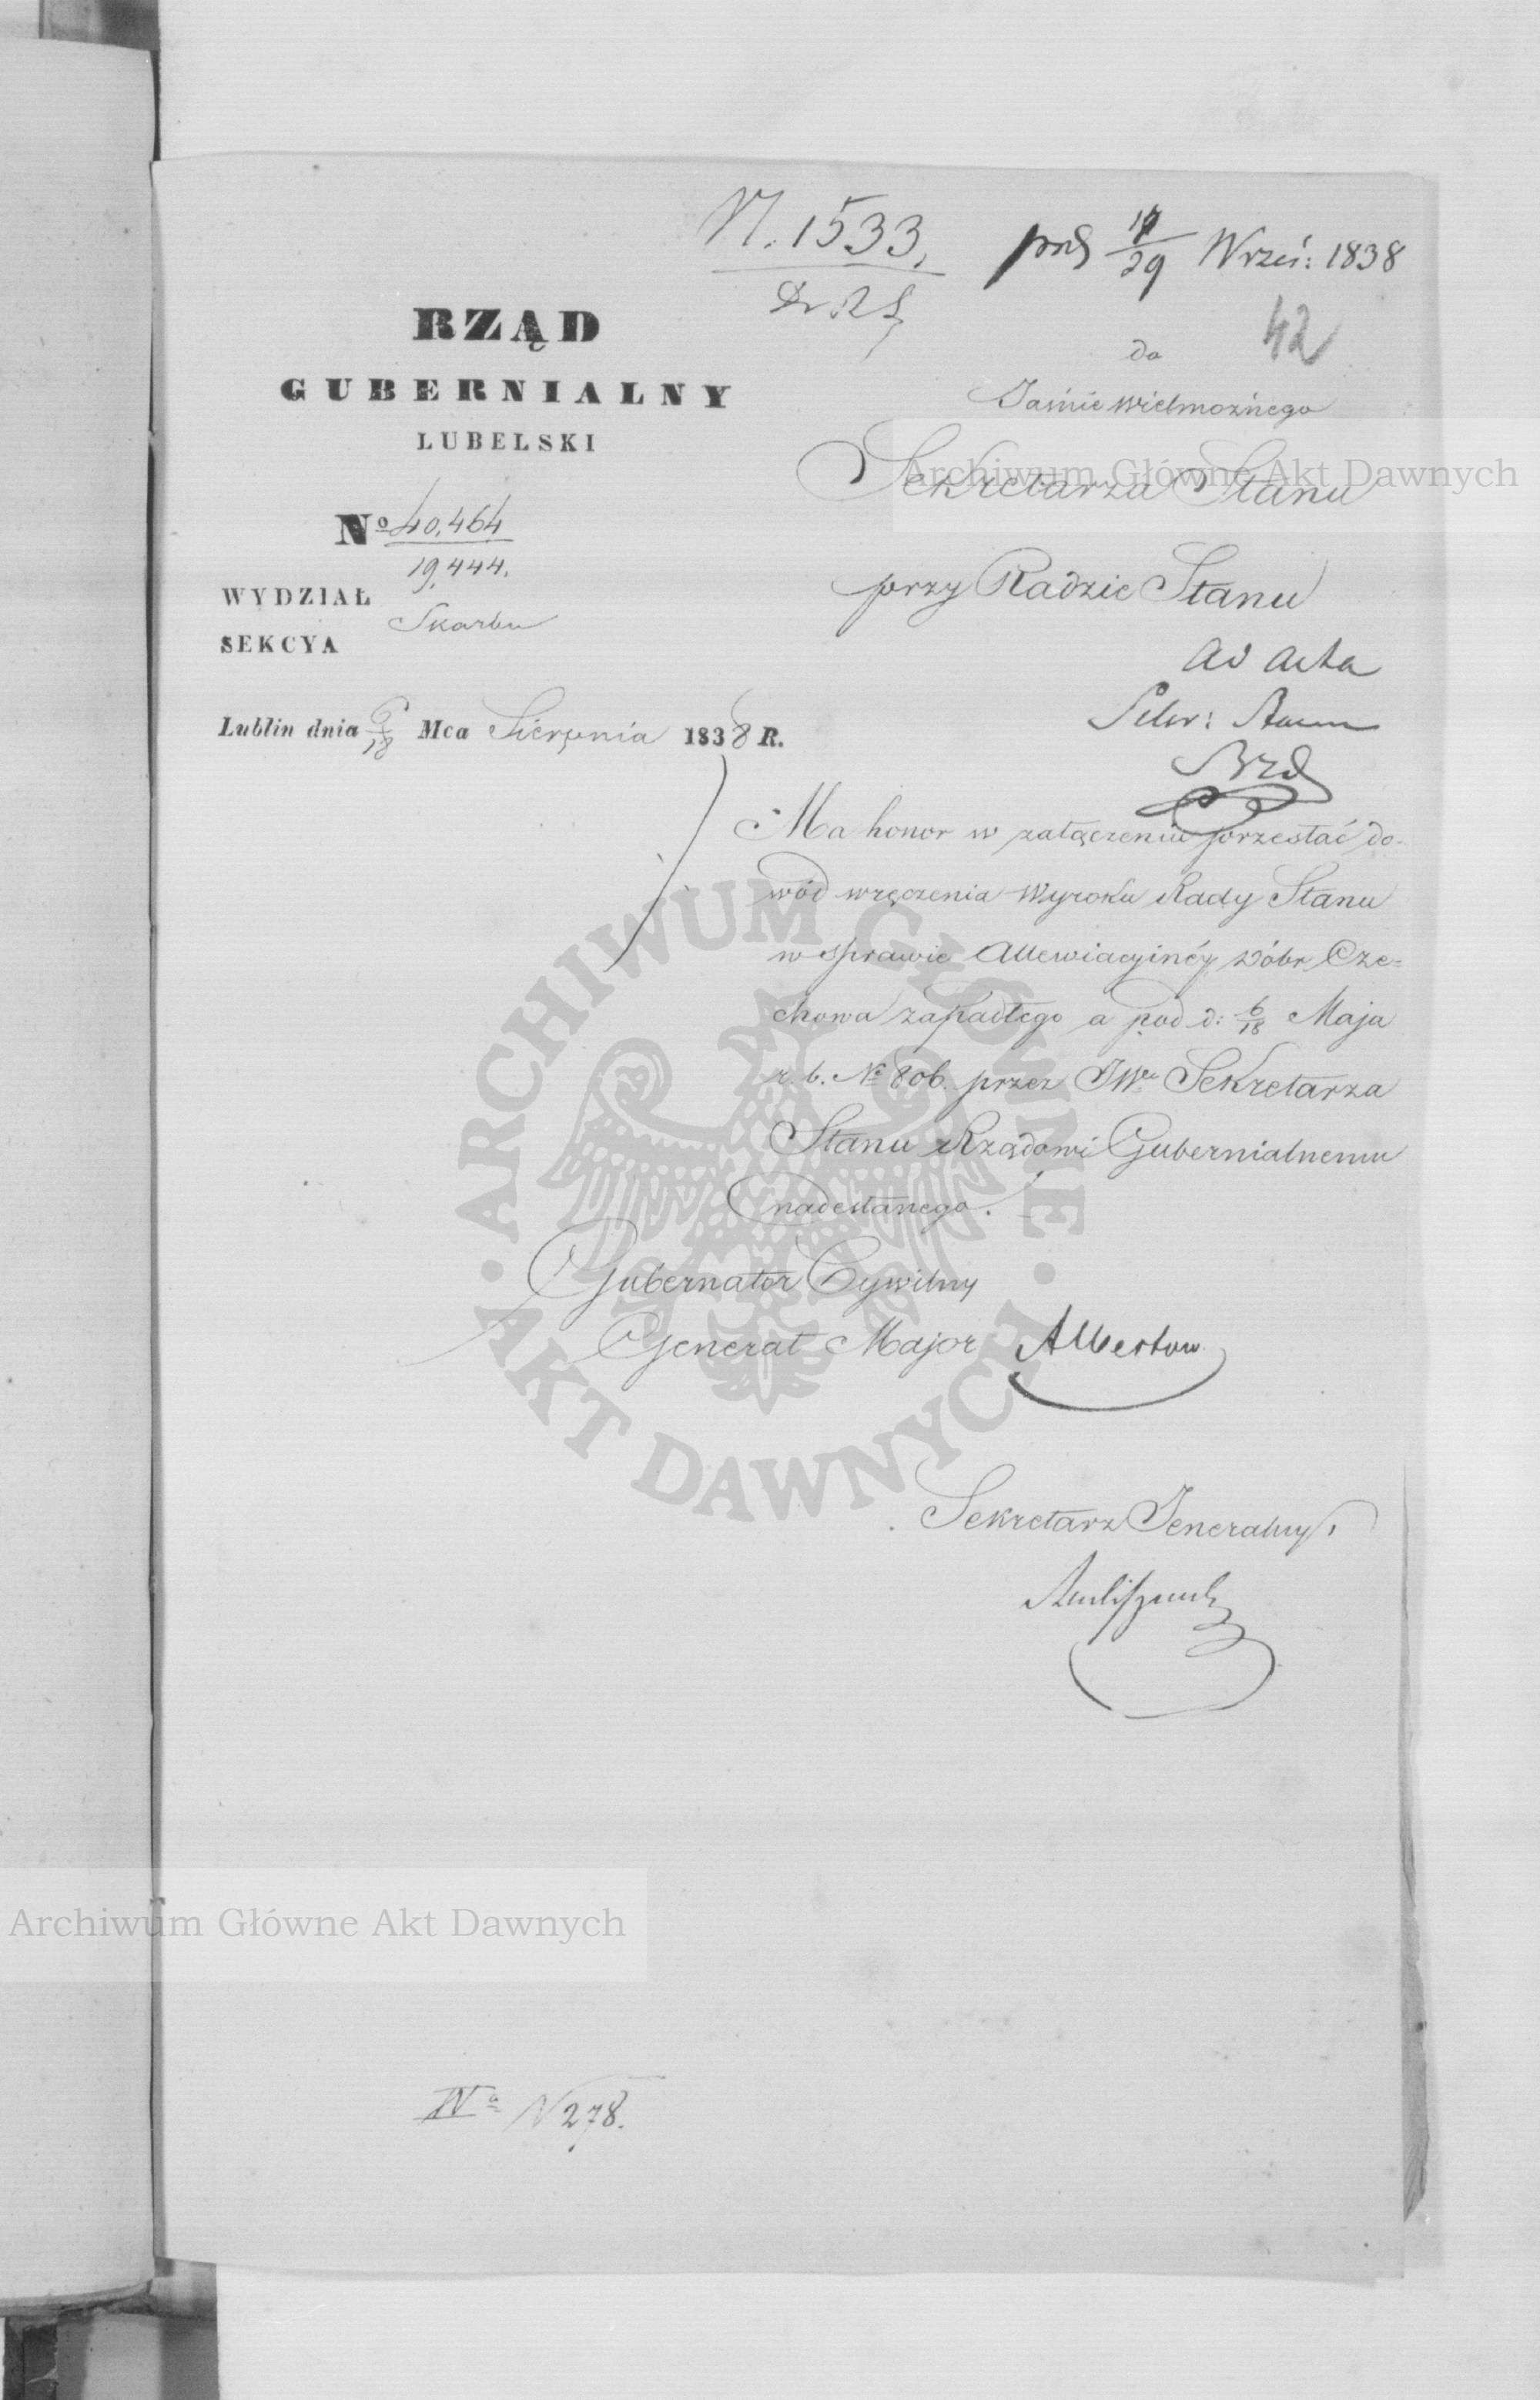 N. 1533.
prd 17/29 Wrześ: 1838
42
RZĄD
GUBERNIALNY
LUBELSKI
No 40,464
19,444.
WYDZIAŁ Skarbu
SEKCYA
Lublin dnia 6/18 Mca Sierpnia 1838 R.
do
Jaśnie Wielmożnego
Sekretarza Stanu
przy Radzie Stanu
ad acta
Ma honor w załączeniu przesłać do-
wód wręczenia Wyroku Rady Stanu
w sprawie Allewiacyinéy dóbr Cze=
chowa zapadłego a pod d: 6/18 Maja
r. b. No 806. przez JWo Sekretarza
Stanu Rządowi Gubernialnemu
nadesłanego.
Gubernator Cywilny
Generał Major Albertow
Sekretarz Jeneralny
IVa N 278.
Archiwum Główne Akt Dawnych
ARCHIWUM GŁÓWNE AKT DAWNYCH
Archiwum Główne Akt Dawnych